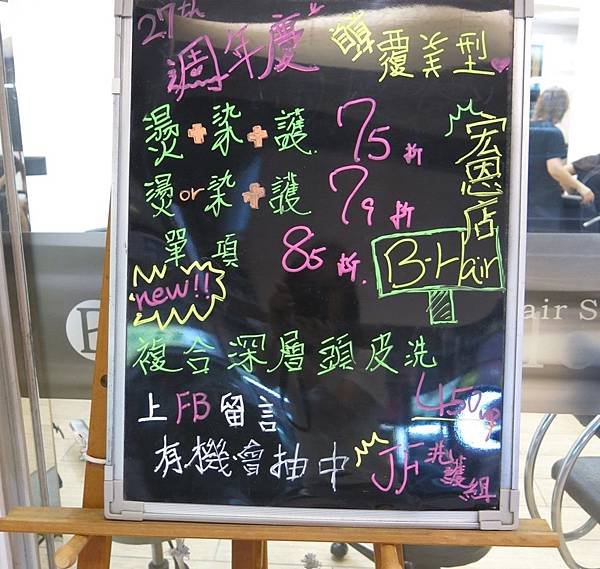 27th 週年慶 顛覆美型
燙+染+護 75折
燙or染+護 79折
單項 85折
宏恩店
B-Hair
new!!
複合深層頭皮洗
450元
上FB留言
有機會抽中 JF洗護組
air S